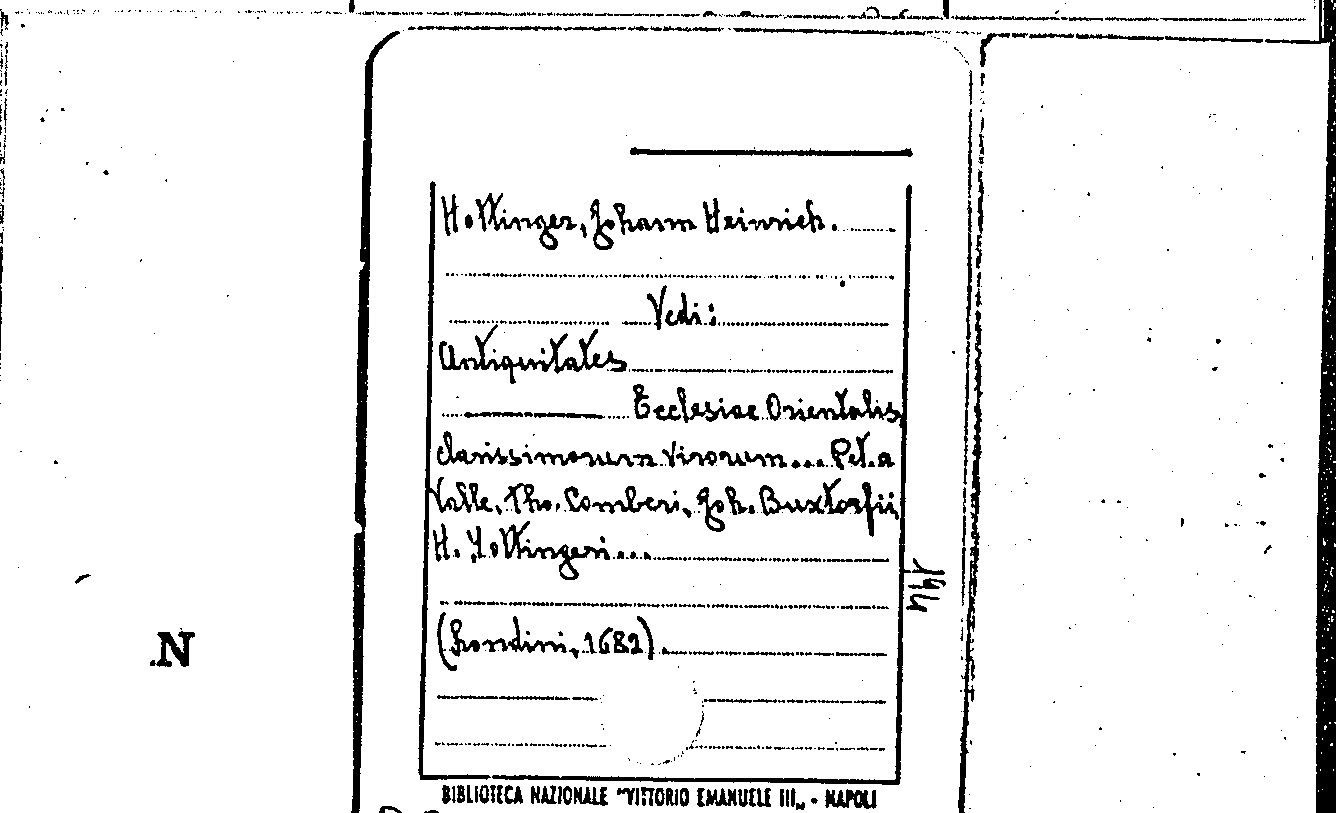 Hottinger, Johann Heinrich.
Vedi:
Antiquitates
Ecclesiae Orientalis,
clarissimorum virorum... Pet. a
Valle, Tho. Comberi, Joh. Buxtorfii,
H. Hottingeri...
(Londini, 1682).
194
N
BIBLIOTECA NAZIONALE "VITTORIO EMANUELE III„ - NAPOLI